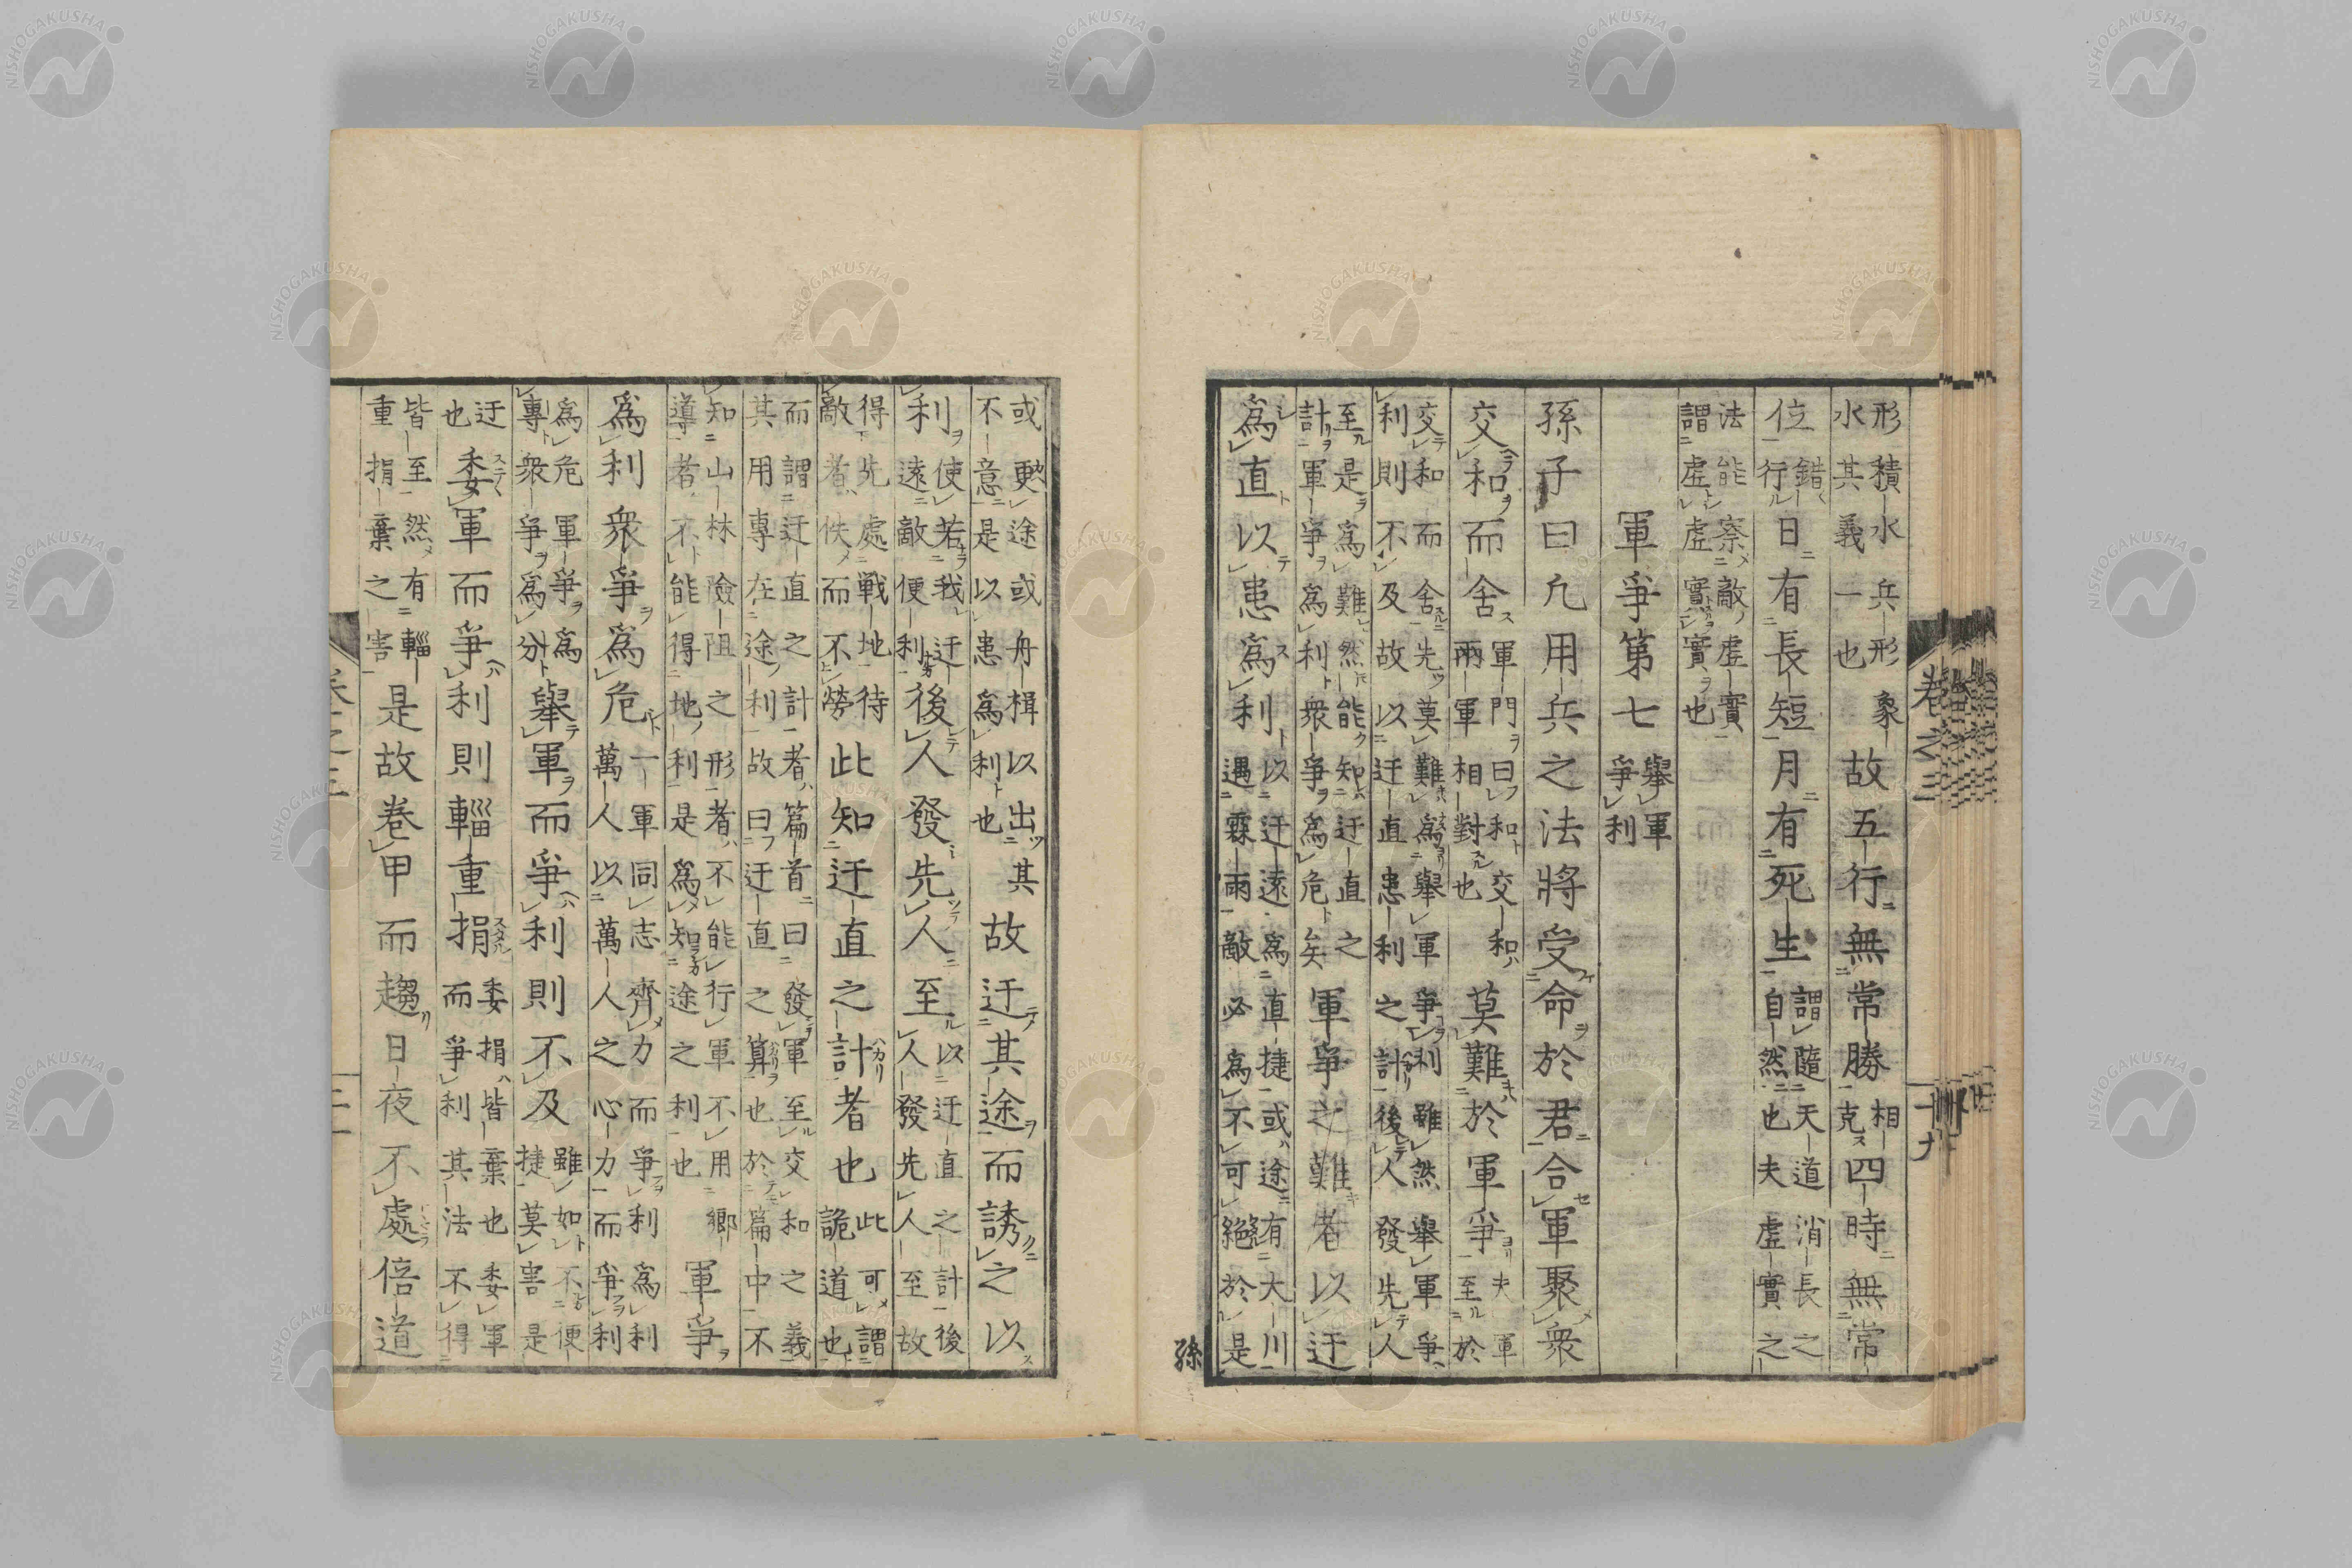 卷之三
十九
形積水兵形象
水其義一也
故五行無常勝
相
克
四時無常
位
錯
行
日有長短月有死生
謂隨天道消長之
自然也夫虛實之
法能察敵虛實
謂虛虛實實也
軍爭第七
舉軍
爭利
孫子曰凡用兵之法將受命於君合軍聚衆
交和而舍
軍門曰和交和
兩軍相對也
莫難於軍爭
夫軍
至於
交和而舍先莫難爲舉軍爭利雖然舉軍爭
利則不及故以迂直患利之計後人發先人
至是爲難然能知迂直之
計軍爭爲利衆爭爲危矣
軍爭之難者以迂
爲直以患爲利
以迂遠爲直捷或途有大川
遇霖雨敵必爲不可絕於是
孫
或更途或舟楫以出其
不意是以患爲利也
故迂其途而誘之以
利
使若我迂
遠敵便利
後人發先人至
以迂直之計後
人發先人至故
得先處戰地待
敵者佚而不勞
此知迂直之計者也
此可謂
詭道也
而謂迂直之計者篇首曰發軍至交和之義
其用專在途利故曰迂直之算也於篇中不
知山林險阻之形者不能行軍不用鄉
導者不能得地利是爲知途之利也
軍爭
爲利衆爭爲危
一軍同志齊力而爭利爲利
萬人以萬人之心力而爭利
爲危軍爭爲
專衆爭爲分
舉軍而爭利則不及
雖如不便
捷莫害是
迂
也
委軍而爭利則輜重捐
委捐皆棄也委軍
而爭利其法不得
皆至然有輜
重捐棄之害
是故卷甲而趨日夜不處倍道